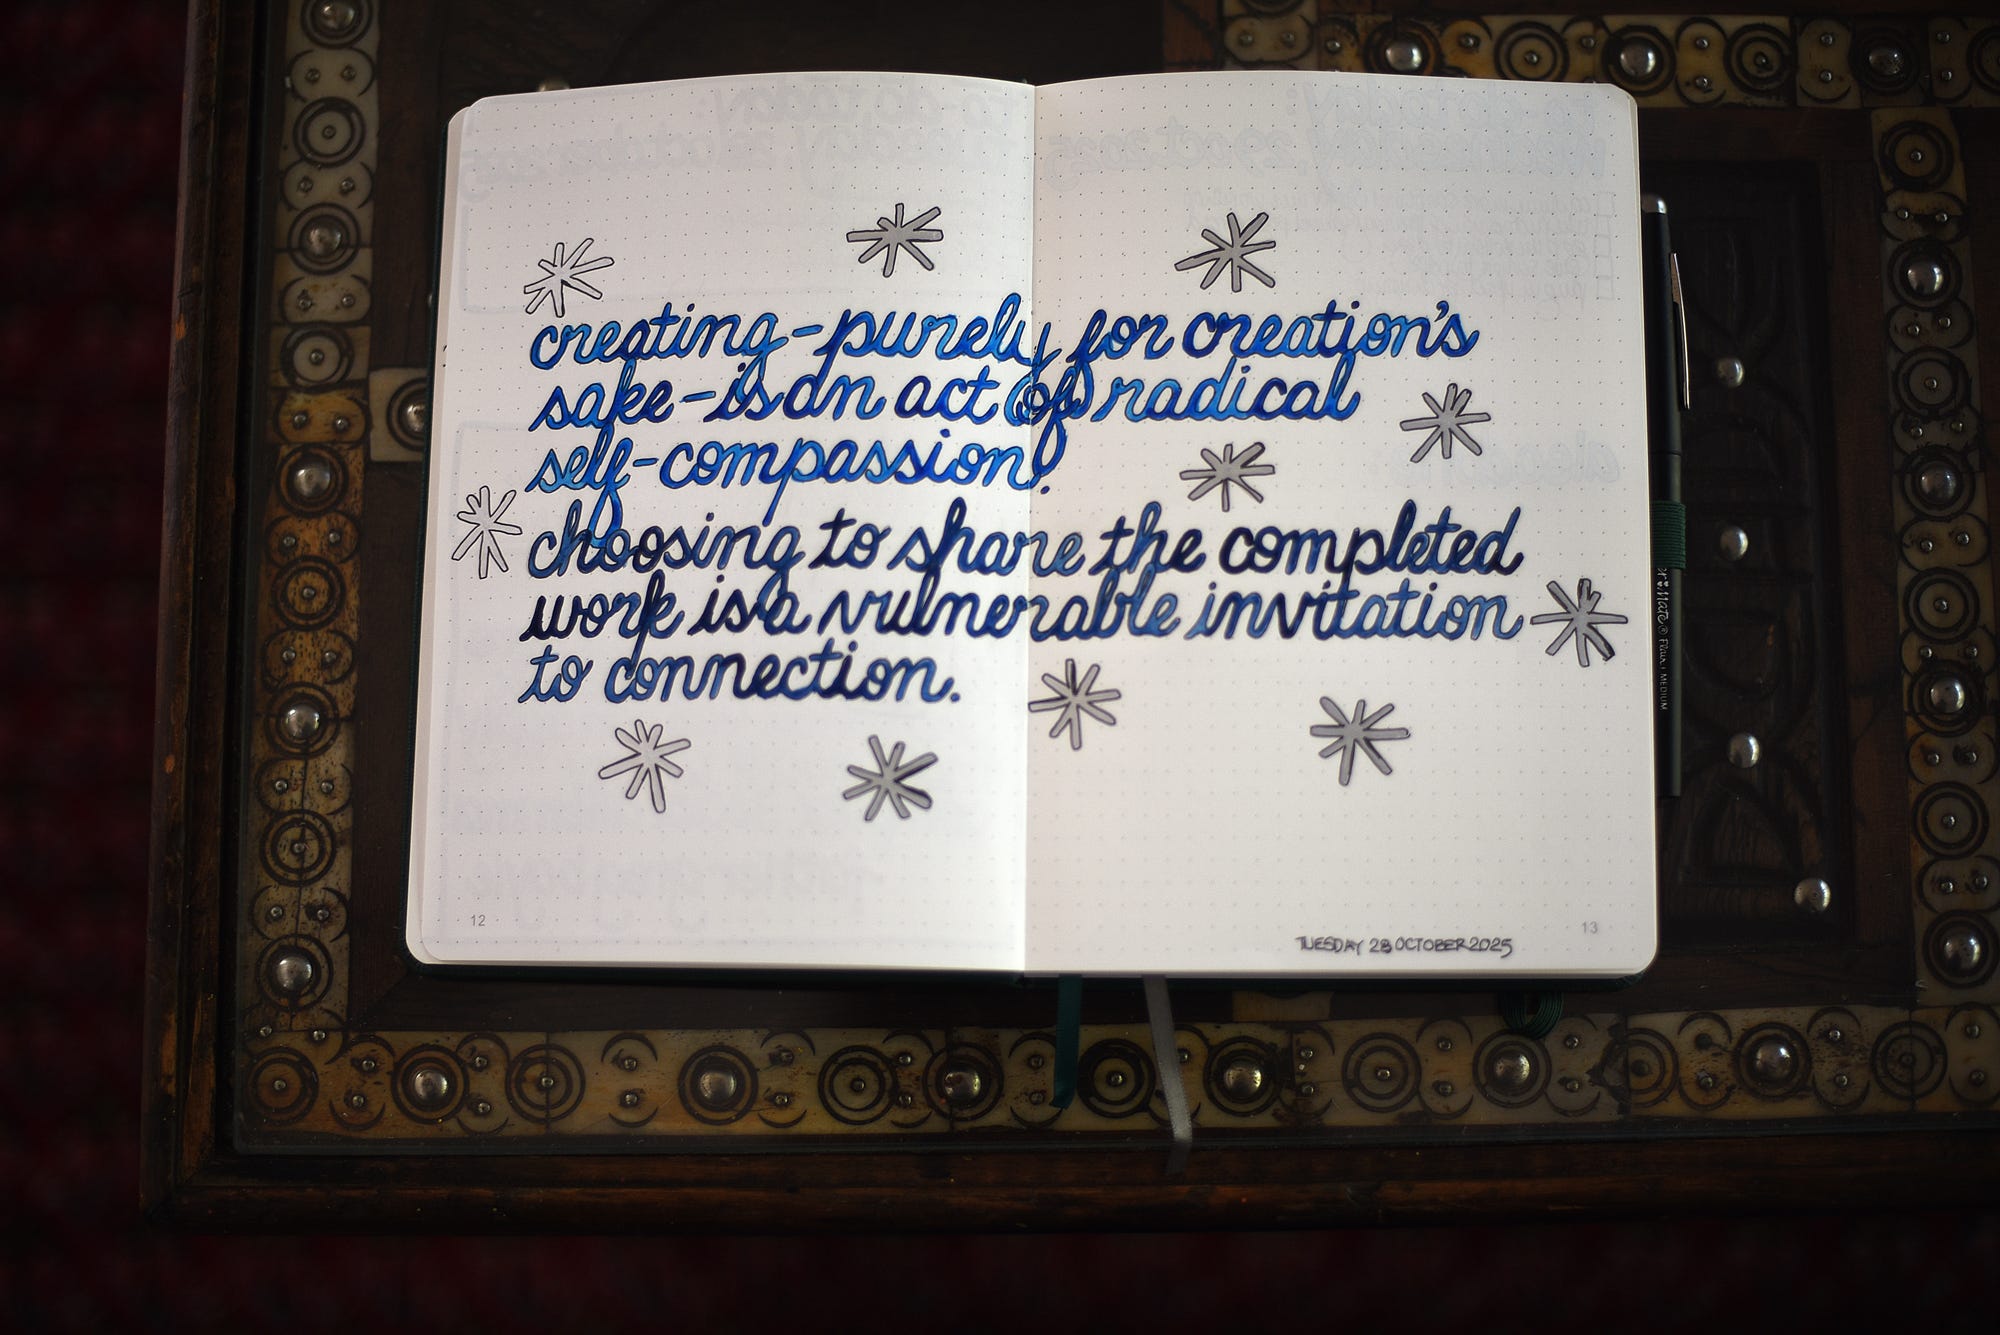 creating-purely for creation's
sake-is an act of radical
self-compassion.
choosing to share the completed
work is a vulnerable invitation
to connection.
12
13
TUESDAY 28 OCTOBER 2025
Mate® Flair. MEDIUM